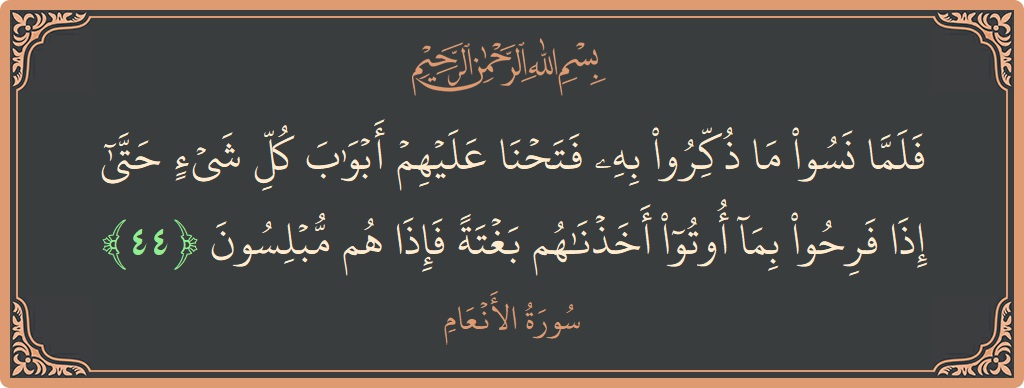 بِسْمِ اللَّهِ الرَّحْمَٰنِ الرَّحِيمِ
فَلَمَّا نَسُوا۟ مَا ذُكِّرُوا۟ بِهِۦ فَتَحْنَا عَلَيْهِمْ أَبْوَٰبَ كُلِّ شَىْءٍ حَتَّىٰٓ
إِذَا فَرِحُوا۟ بِمَآ أُوتُوٓا۟ أَخَذْنَٰهُم بَغْتَةً فَإِذَا هُم مُّبْلِسُونَ ﴿٤٤﴾
سُورَةُ الأَنْعَامِ